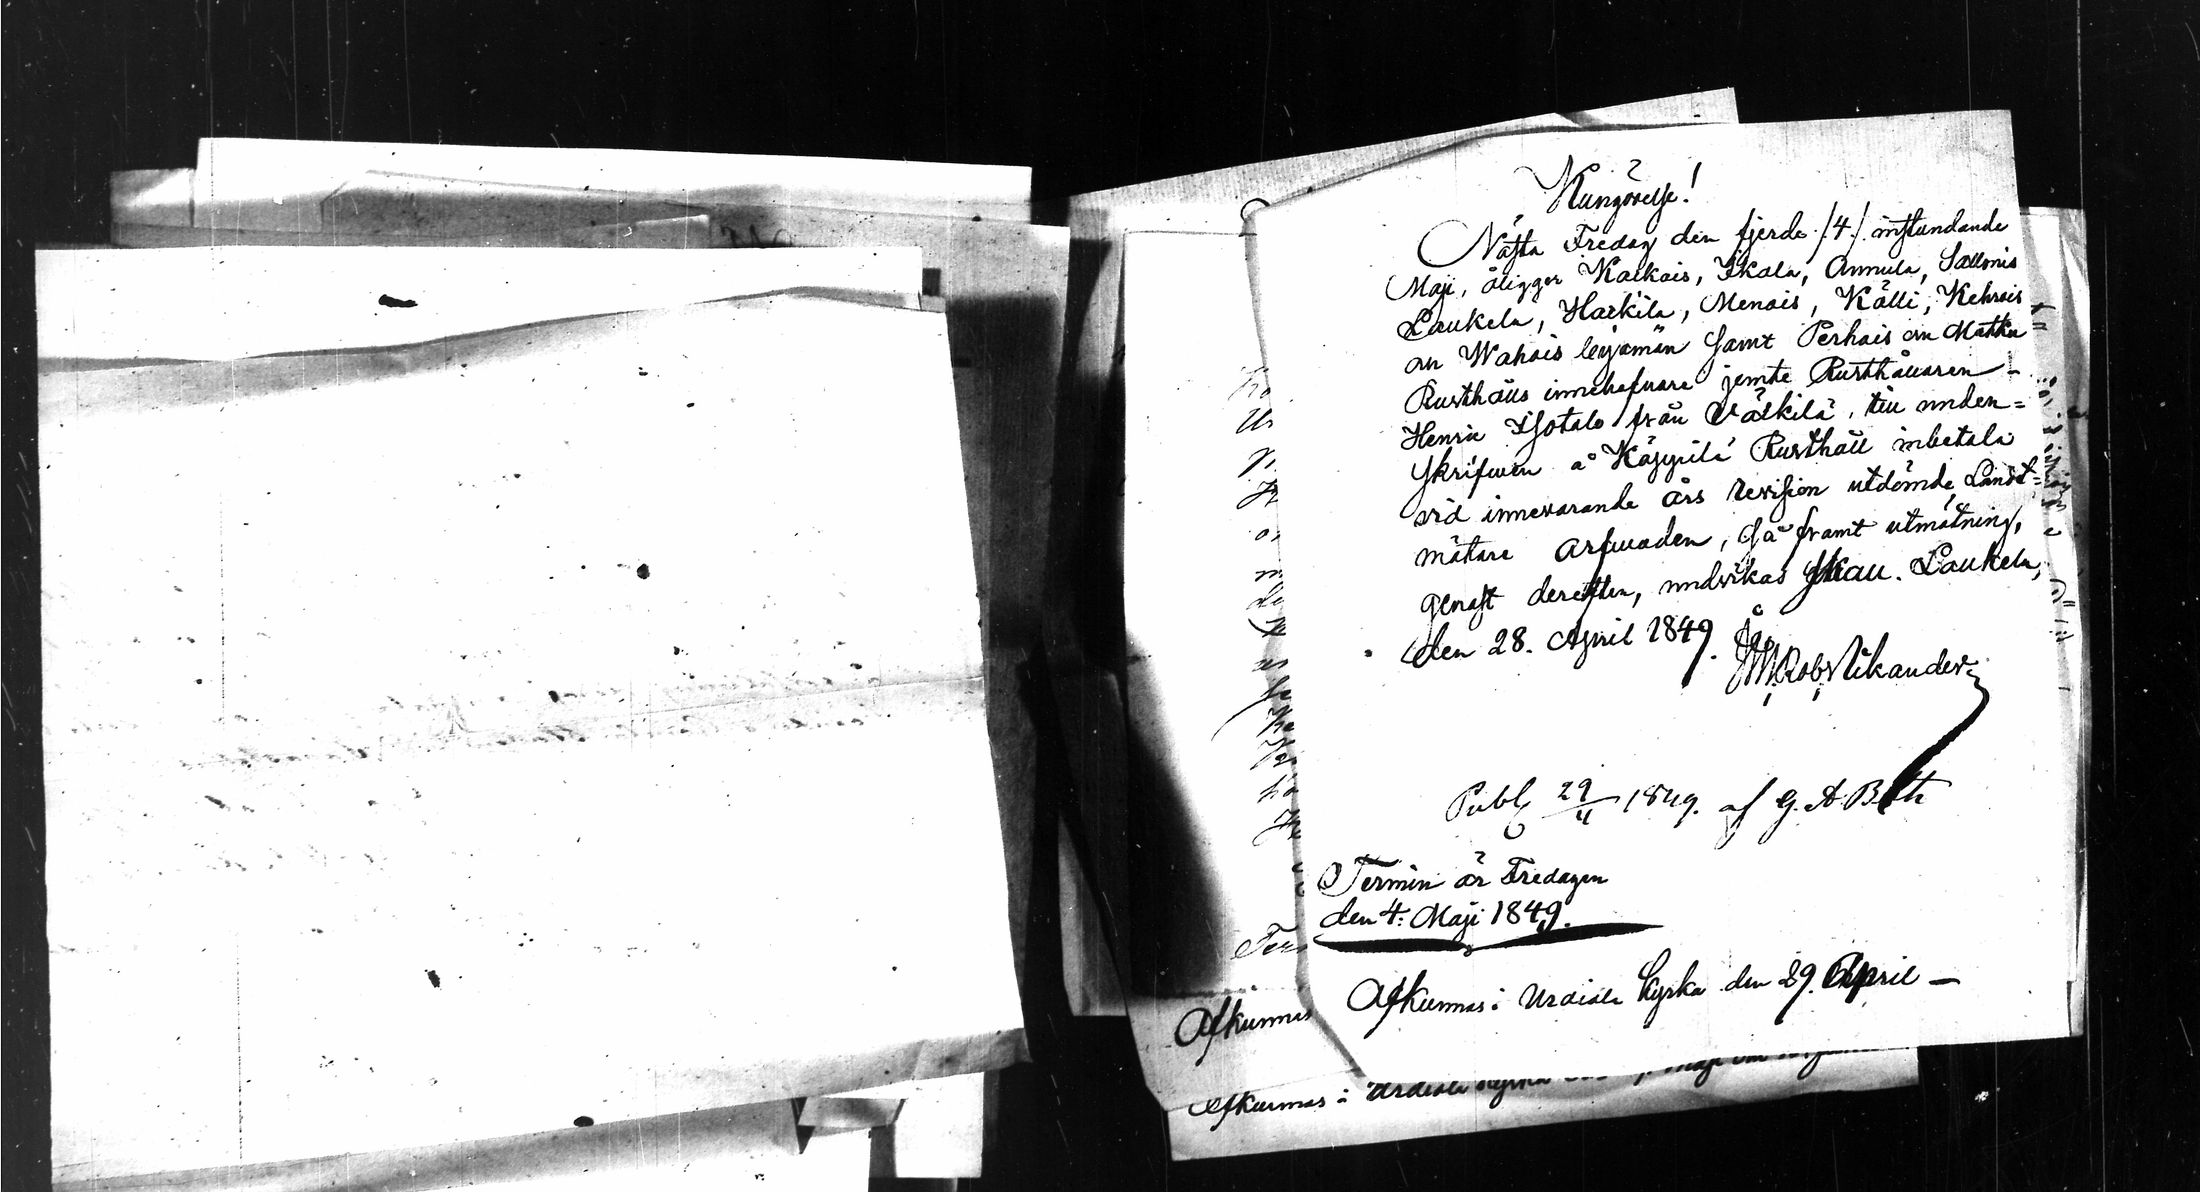 Kungörelse!
Nästa Fredag den fjerde /:4:/ instundande
Maji, åligger Kalkais, Skala, Annula, Sallonis
Laukela, Harkila, Menois, Källi, Kehrois
och Wahois legomän samt Perhais och Matku
Rusthålls innehafvare jemte Rusthållaren
Henric Isotalo från Välkilä, till under=
skrifven å Käypilä Rusthåll inbetala
vid innevarande års revision utdömde Landt=
mätare arfvoden, så framt utmätning,
genast derefter, undvikas skall. Laukela,
den 28. April 1849.
Rob Nikander
Publ 29/4 1849. af G. A. Both
Termin är Fredagen
den 4: Maji 1849.
Afkunnas i Urdiala kyrka den 29. April —
Afkunnas
Afkunnas i Urdiala kyrka